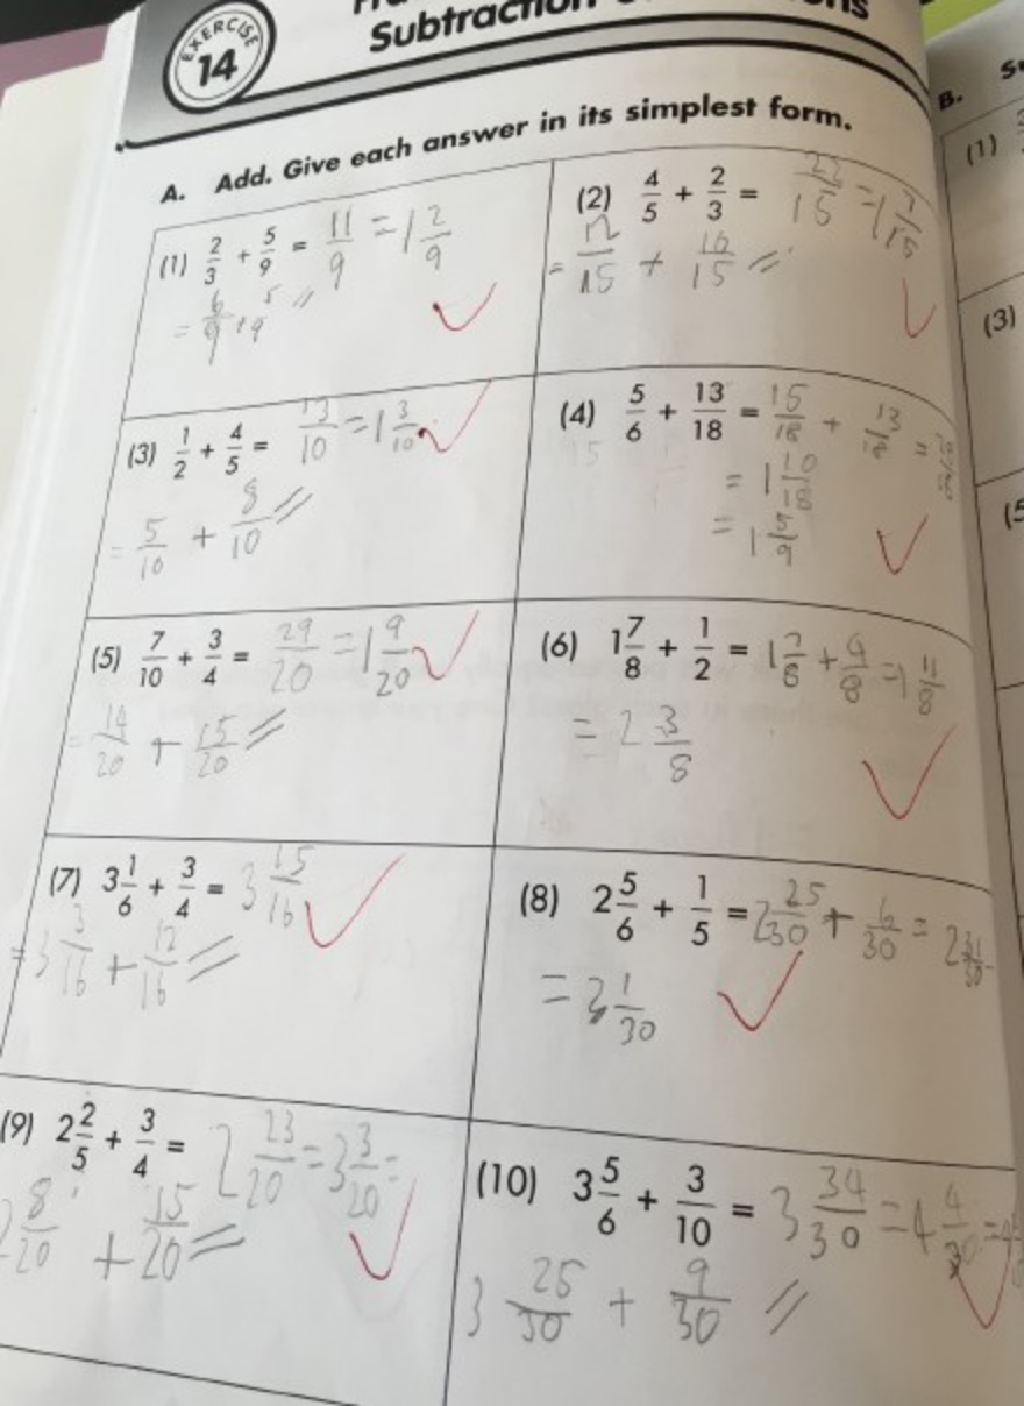 EXERCISE
14
Subtraction
A. Add. Give each answer in its simplest form.
(1) 2/3 + 5/9 = 11/9 = 1 2/9
= 6/9 + 5/9 //
(2) 4/5 + 2/3 = 22/15 = 1 7/15
= 12/15 + 10/15 //
(3) 1/2 + 4/5 = 13/10 = 1 3/10
= 5/10 + 8/10 //
(4) 5/6 + 13/18 = 15/18 + 13/18 =
= 1 10/18
= 1 5/9
(5) 7/10 + 3/4 = 29/20 = 1 9/20
= 14/20 + 15/20 //
(6) 1 7/8 + 1/2 = 1 7/8 + 4/8 = 1 11/8
= 2 3/8
(7) 3 1/6 + 3/4 = 3 15/16
= 3 3/16 + 12/16 //
(8) 2 5/6 + 1/5 = 2 25/30 + 6/30 = 2 31/30
= 3 1/30
(9) 2 2/5 + 3/4 = 2 23/20 = 3 3/20 =
2 8/20 + 15/20 //
(10) 3 5/6 + 3/10 = 3 34/30 = 4 4/30 =
3 25/30 + 9/30 //
B.
(1)
(3)